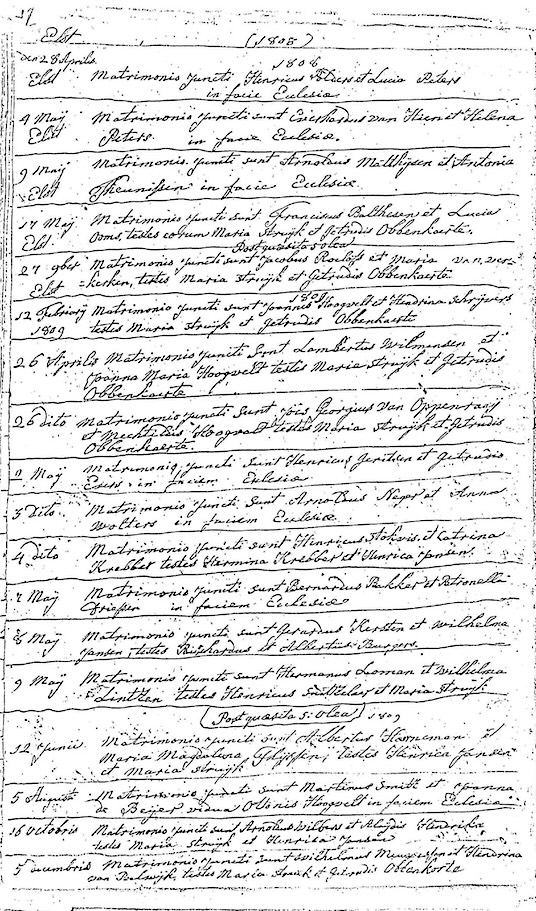 Elst (1808)
den 28 Aprilis 1808
Elst Matrimonio juncti Henricus et Lucia Peters
in facie Eclesiæ
4 Maij Matrimonio juncti sunt Everhardus van Hien et Helena
Elst Peters in facie Eclesiæ.
9 Maij Matrimonio juncti sunt Arnoldus Matthijsen et Antonia
Elst Theunissen in facie Eclesiæ
17 Maij Matrimonio juncti sunt Franciscus Balthesen et Lucia
Elst. Ooms, testes eorum Maria Struijk et Getrudis Obbenkaerte.
Post quæsita solea
27 9ber Matrimonio juncti sunt Jacobus Roelofs et Maria van ver=
Elst =kerken, testes Maria Struijk et Getrudis Obbenkaerte
1809
12 Februarij Matrimonio juncti sunt Joannes Hoogvelt et Hendrina Schrijvers
1809 testes Maria Struijk et Getrudis Obbenkaerte
26 Aprilis Matrimonio juncti sunt Lambertus Wilmensen et
Joanna Maria Hoogvelt testes Maria Struijk et Getrudis
Obbenkaerte
26 dito Matrimonio juncti sunt Georgius van Oppenraaij
et Mechtildis Hoogvelt testes Maria Struijk et Getrudis
Obbenkaerte
Maij Matrimonio juncti sunt Henricus Geritsen et Getrudis
Evers in faciem Eclesiæ
3 Dito Matrimonio juncti sunt Arnoldus et Anna
Wolters in faciem Eclesiæ.
4 dito Matrimonio juncti sunt Henricus Stokvis et Catrina
Krebber testes Hermina Krebber et Henrica Jansen.
7 Maij Matrimonio juncti sunt Bernardus Bakker et Petronella
Driessen in faciem Ecclesiæ
8 Maij Matrimonio juncti sunt Gerardus Kersten et Wilhelma
Jansen, testes et Albertus Burgers.
9 Maij Matrimonio juncti sunt Hermanus Loman et Wilhelma
Lintzen testes Henricus et Maria Struijk
(Post quæsita solea) 1809
12 Junii Matrimonio juncti sunt Albertus Hanneman et
Maria Magdalena testes Henrica Jansen
et Maria Struijk
5 Augusti Matrimonio juncti sunt Martinus Smitz et Joanna
de Beijer vidua Hoogvelt in faciem Eclesiæ
16 octobris Matrimonio juncti sunt Arnoldus Wilbers et Aleijdis Hendriks
testes Maria Struijk et Henrica Jansen
5 decembris Matrimonio juncti sunt Wilhelmus et Hendrina
van testes Maria Struik et Getrudis Obbenkorte